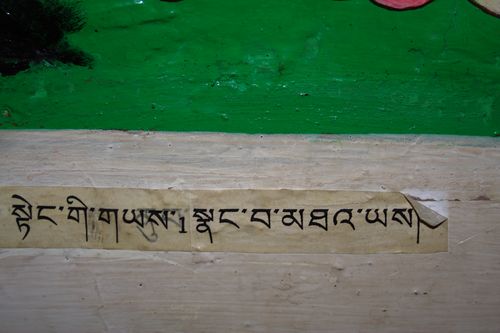 སྟེང་གི་གཡས་1 སྣང་བ་མཐའ་ཡས།